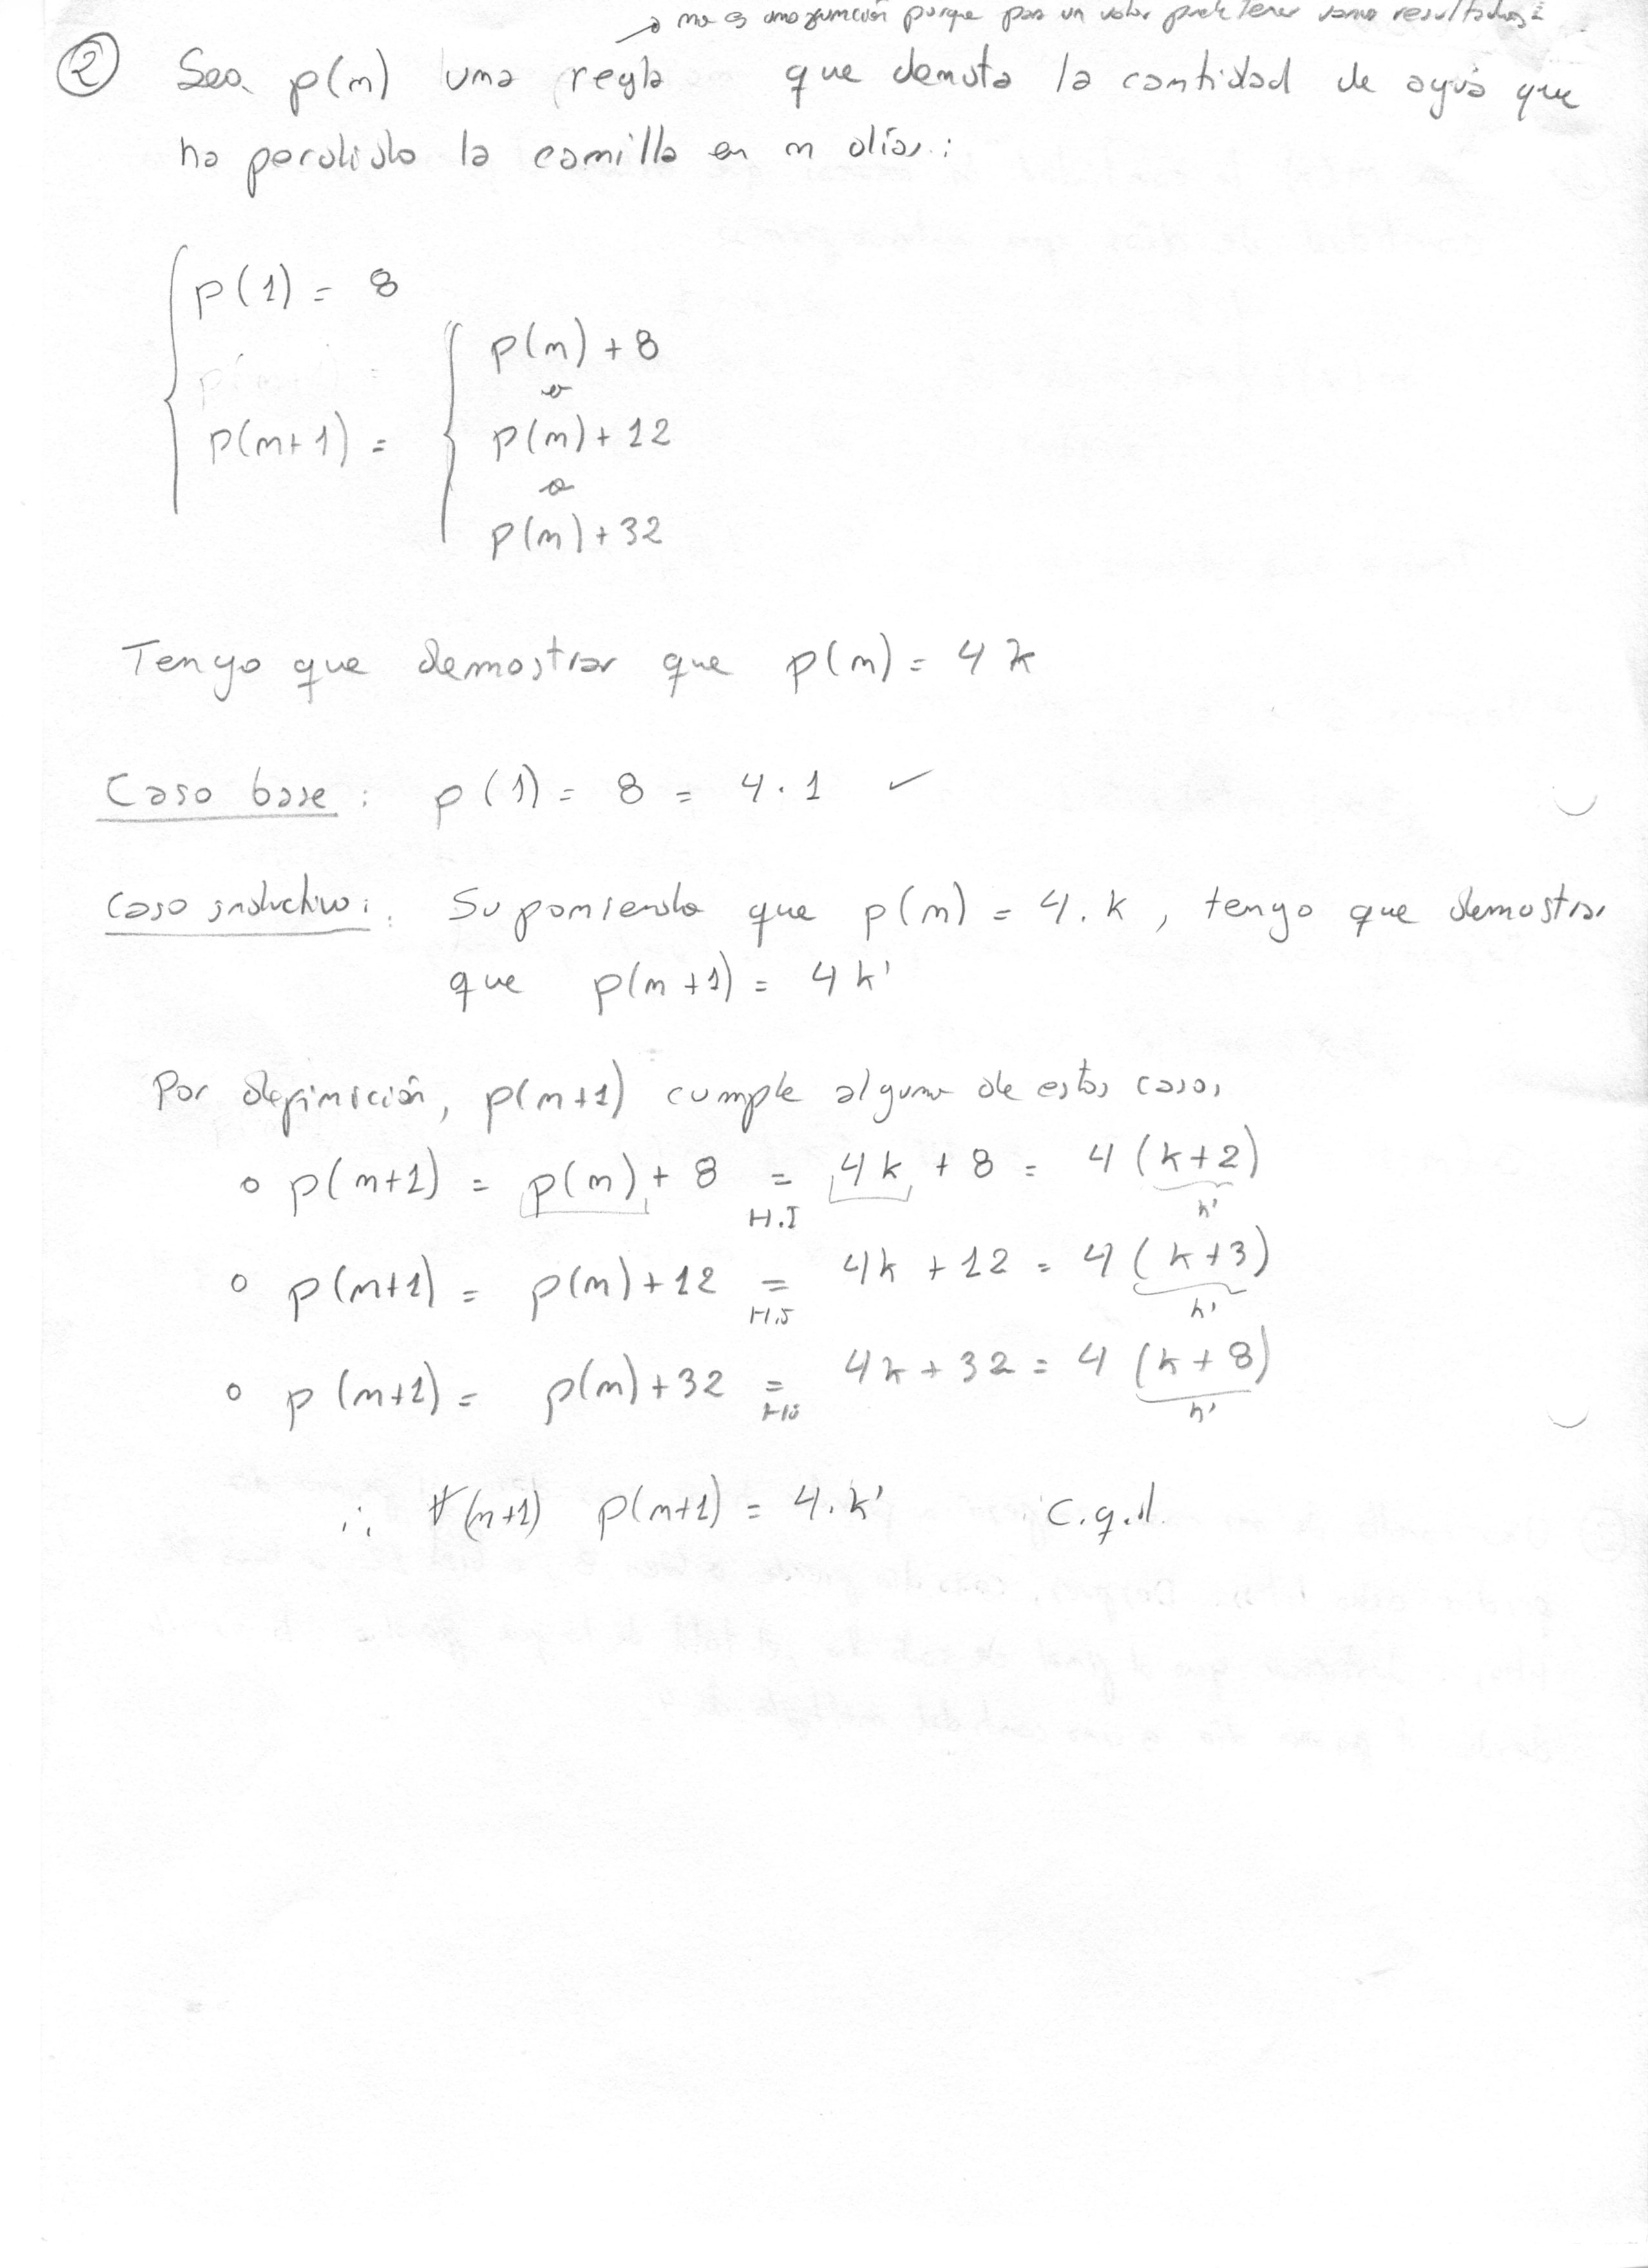 no es una función porque para un valor puede tener varios resultados
② Sea p(n) una regla que denota la cantidad de agua que
ha perdido la canilla en n días:
p(1) = 8
p(n) + 8
o
p(n+1) = p(n) + 12
o
p(n) + 32
Tengo que demostrar que p(n) = 4k
Caso base: p(1) = 8 = 4.1 ✓
Caso inductivo: Suponiendo que p(n) = 4.k, tengo que demostrar
que p(n+1) = 4k'
Por definición, p(n+1) cumple alguno de estos casos
o p(n+1) = p(n) + 8 = 4k + 8 = 4(k+2)
H.I k'
o p(n+1) = p(n) + 12 = 4k + 12 = 4(k+3)
H.I k'
o p(n+1) = p(n) + 32 = 4k + 32 = 4(k+8)
H.I k'
∴ ∀(n+1) p(n+1) = 4.k' C.q.d.